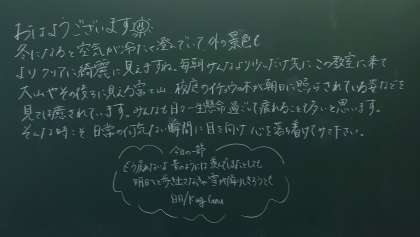 おはようございます
冬になると空気が冷たく澄んでいて外の景色も
よりクリアに綺麗に見えますね。毎朝みんなより少しだけ先にこの教室に来て
大山やその後ろに見える富士山、校庭のイチョウの木が朝日に照らされている姿などを
見ては癒されています。みんなも日々一生懸命過ごして疲れることも多いと思います。
そんな時こそ日常の何気ない瞬間に目を向け心を落ち着けて下さい。
今日の一節
明日へと歩き出さなきゃ 雪が降りしきろうとも
白日/King Gnu